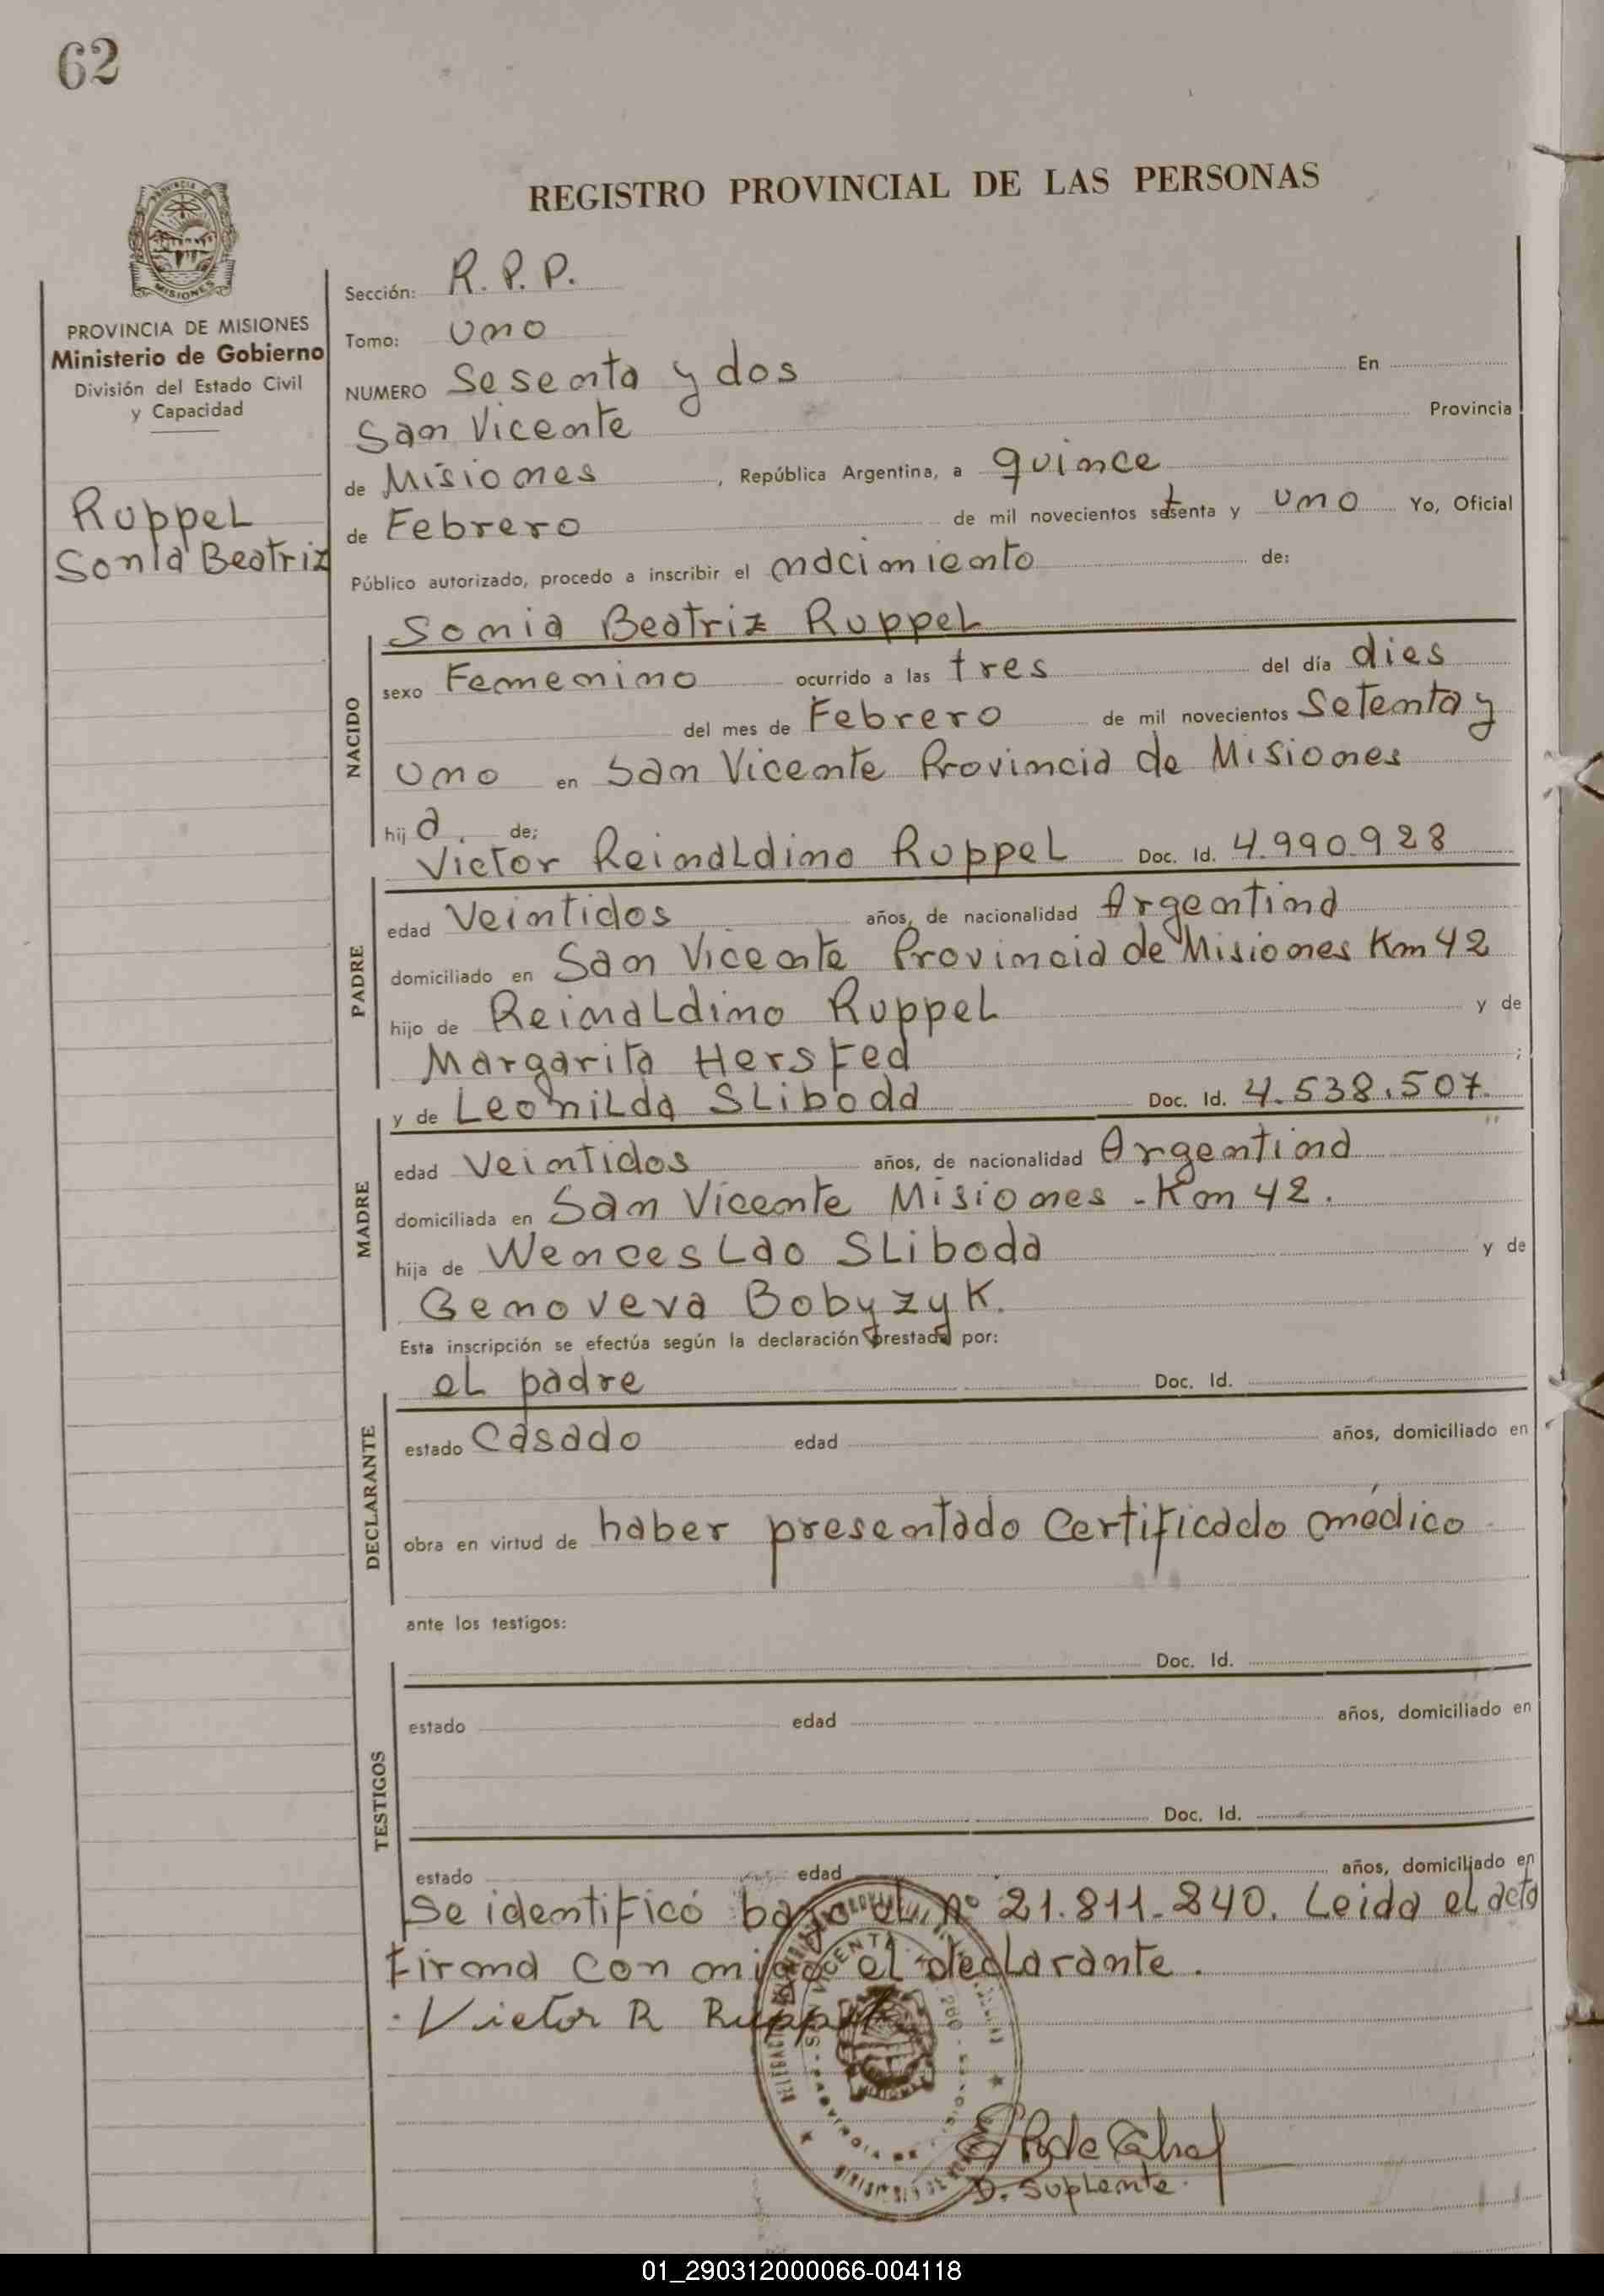 62
REGISTRO PROVINCIAL DE LAS PERSONAS
MISIONES
PROVINCIA DE MISIONES
Ministerio de Gobierno
División del Estado Civil
y Capacidad
Ruppel
Sonia Beatriz
Sección: R. P. P.
Tomo: uno
NUMERO Sesenta y dos En
San Vicente Provincia
de Misiones, República Argentina, a quince
de Febrero de mil novecientos setenta y uno Yo, Oficial
Público autorizado, procedo a inscribir el nacimiento de:
Sonia Beatriz Ruppel
NACIDO
sexo Femenino ocurrido a las tres del día dies
del mes de Febrero de mil novecientos Setenta y
uno en San Vicente Provincia de Misiones
hija. de;
Victor Reinaldino Ruppel Doc. Id. 4.990.928
PADRE
edad Veintidos años, de nacionalidad Argentina
domiciliado en San Vicente Provincia de Misiones Km 42
hijo de Reinaldino Ruppel y de
Margarita Hersfed ;
y de Leonilda Sliboda Doc. Id. 4.538.507.
MADRE
edad Veintidos años, de nacionalidad Argentina
domiciliada en San Vicente Misiones - Km 42.
hija de Wenceslao Sliboda y de
Genoveva Bobyzyk.
Esta inscripción se efectúa según la declaración prestada por:
el padre Doc. Id.
DECLARANTE
estado Casado edad años, domiciliado en
obra en virtud de haber presentado Certificado médico
ante los testigos:
Doc. Id.
TESTIGOS
estado edad años, domiciliado en
Doc. Id.
estado edad años, domiciliado en
Se identificó bajo el nº 21.811.840. Leida el acta
firma conmigo el declarante.
Victor R Ruppel
D. Suplente
01_290312000066-004118